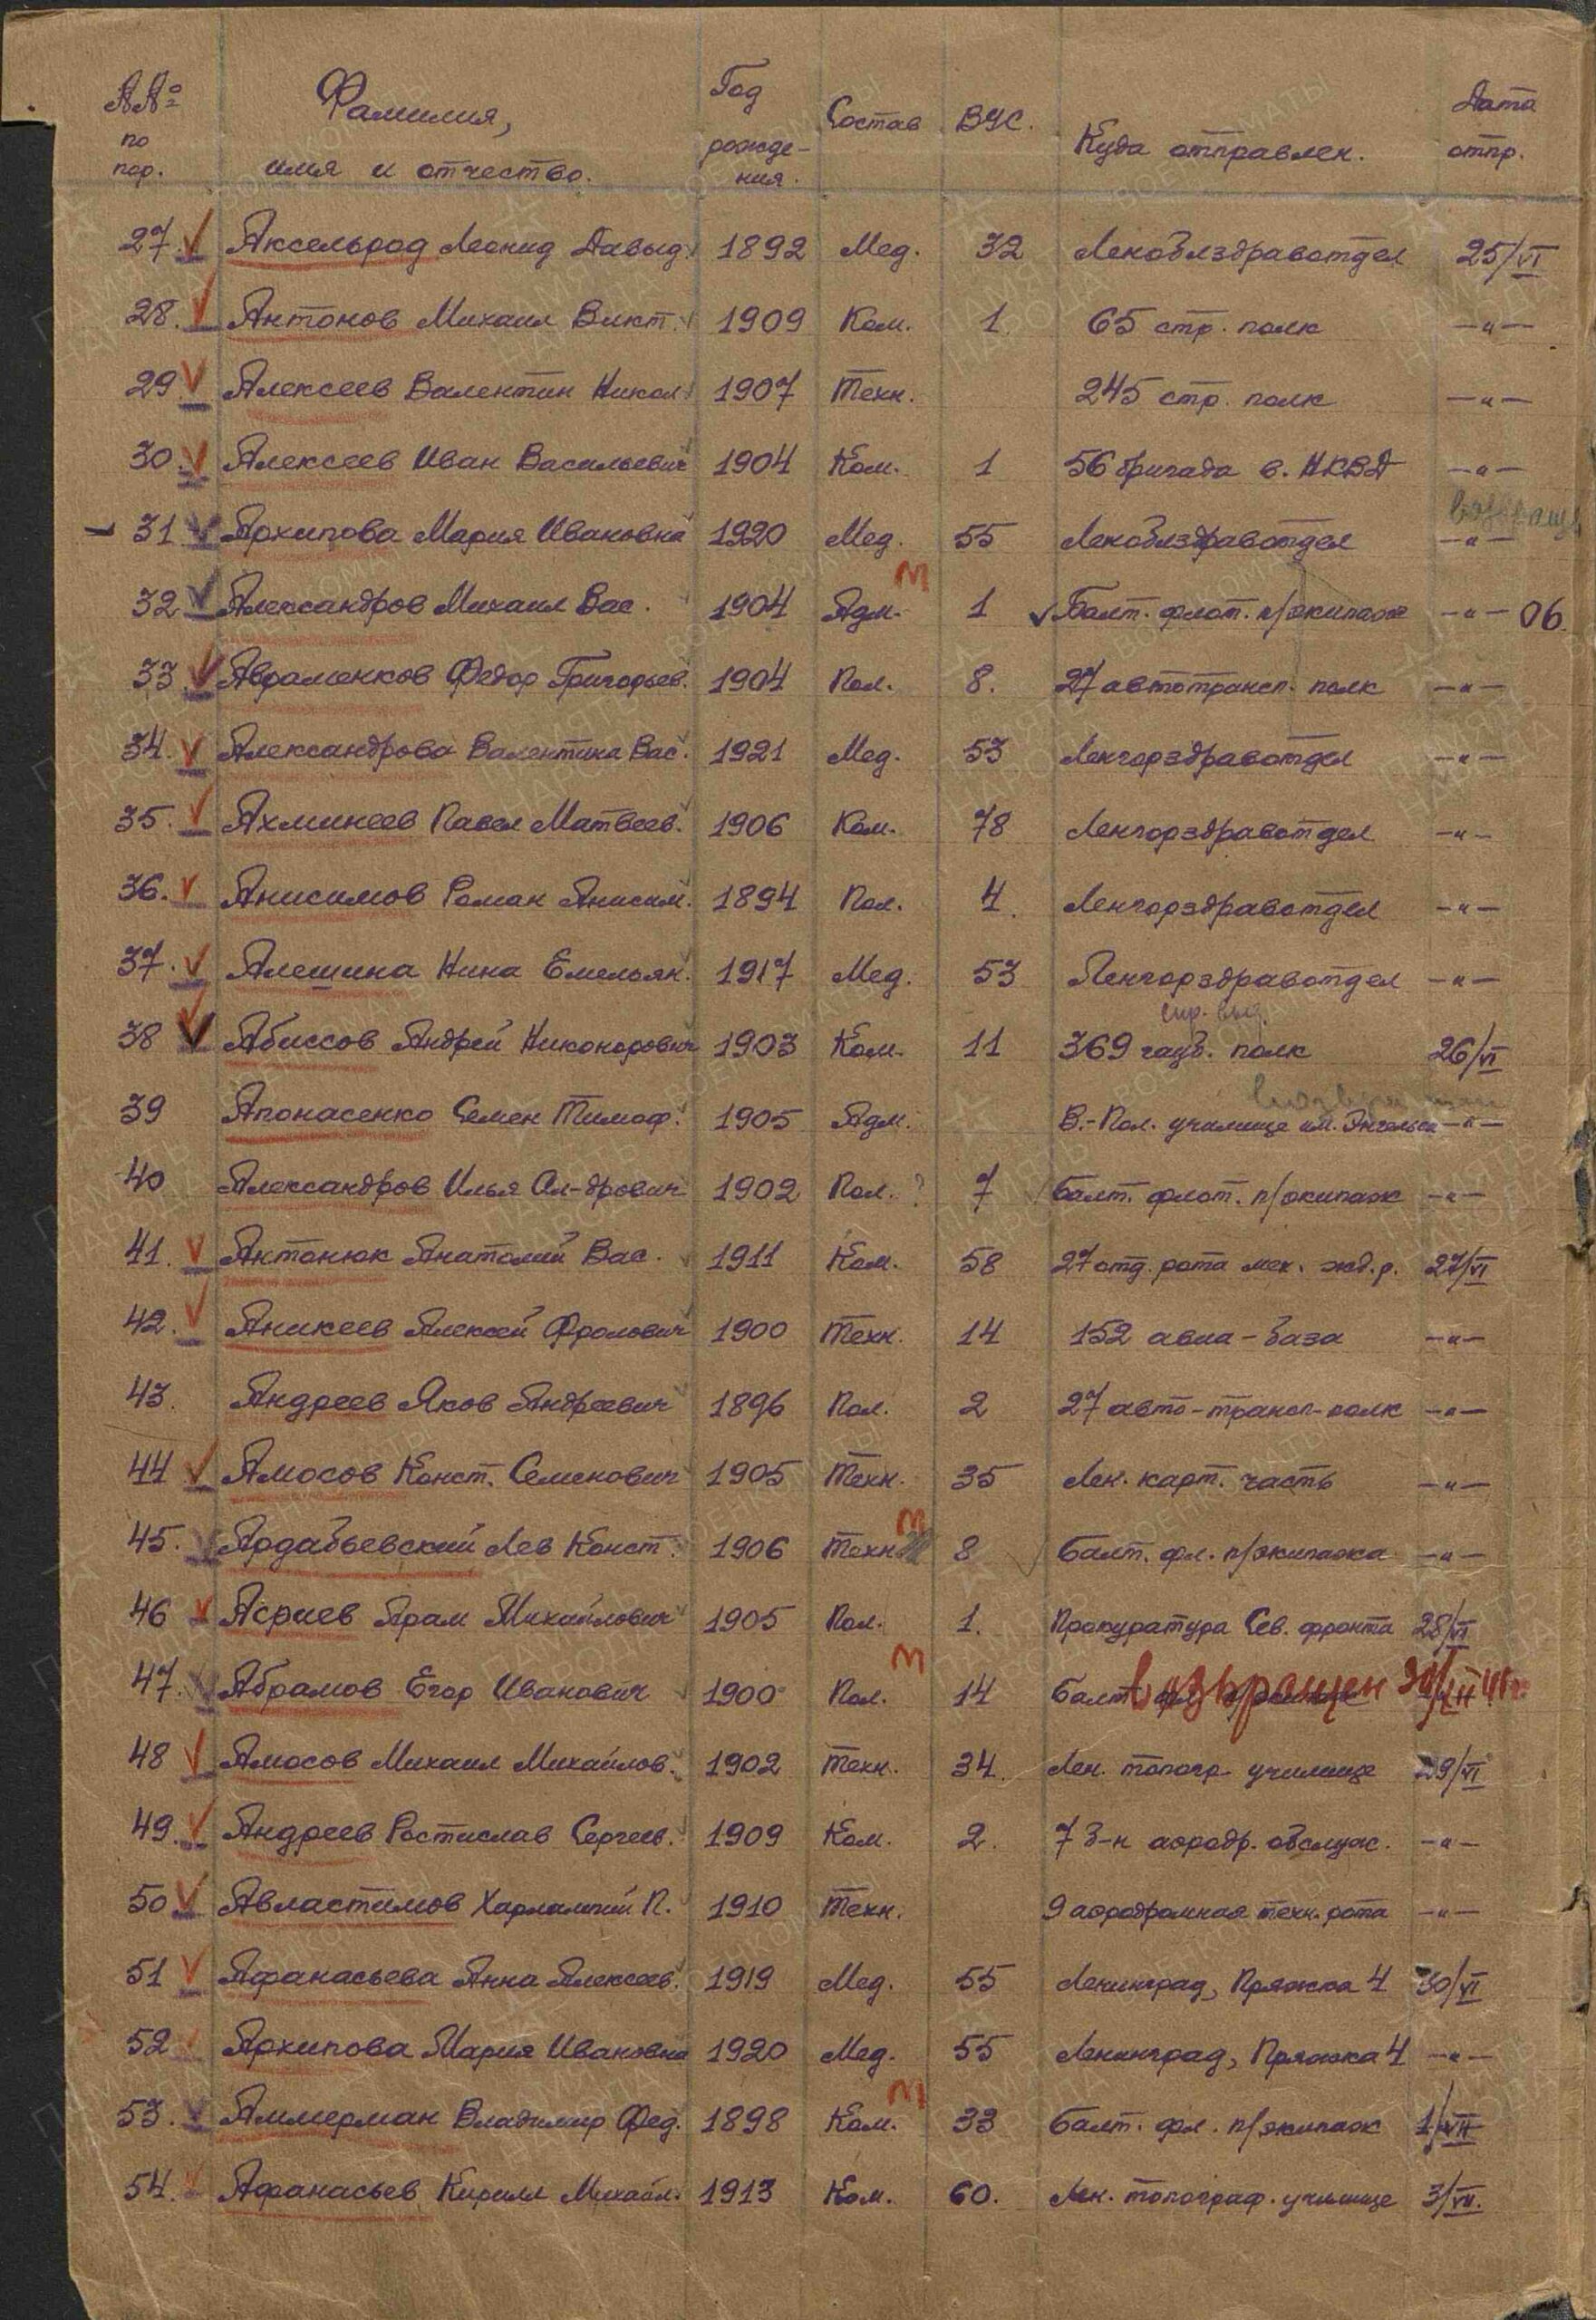 №№ по пор. Фамилия, имя и отчество. Год рожде-ния. Состав ВУС. Куда отправлен. Дата отпр.
27. Аксельрод Леонид Давыд. 1892 Мед. 32 Леноблздравотдел 25/VI
28. Антонов Михаил Викт. 1909 Ком. 1. 65 стр. полк —"—
29 Алексеев Валентин Никол. 1907 Техн. 245 стр. полк —"—
30. Алексеев Иван Васильевич 1904 Ком. 1 56 бригада в. НКВД —"—
возвращ
31 Архипова Мария Ивановна 1920 Мед. 55 Леноблздравотдел —"—
32 Александров Михаил Вас. 1904 Адм. М 1 Балт. флот. п/экипаж —"— 06.
33 Авраменков Федор Григорьев. 1904 Пол. 8. 27 автотрансп. полк —"—
34. Александрова Валентина Вас. 1921 Мед. 53 Ленгорздравотдел —"—
35. Ахминеев Павел Матвеев. 1906 Ком. 78 Ленгорздравотдел —"—
36. Анисимов Роман Анисим. 1894 Пол. 4. Ленгорздравотдел —"—
37. Алешина Нина Емельян. 1917 Мед. 53 Ленгорздравотдел —"—
38 Абиссов Андрей Никонорович 1903 Ком. 11 369 гауб. полк 26/VI
39 Апонасенко Семен Тимоф. 1905 Адм. В.-Пол. училище им. Энгельса —"—
40 Александров Илья Ал-дрович 1902 Пол. ? 7 Балт. флот. п/экипаж —"—
41. Антонюк Анатолий Вас. 1911 Ком. 58 27 отд. рота мех. жд. р. 27/VI
42. Аникеев Алексей Фролович 1900 Техн. 14 152 авиа-база —"—
43. Андреев Яков Андреевич 1896 Пол. 2 27 авто-трансп-полк —"—
44 Амосов Конст. Семенович 1905 Техн. 35 Лен. карт. часть —"—
45. Ардабьевский Лев Конст. 1906 Техн. М 8 Балт. фл. п/экипажа —"—
46 Асриев Арам Михайлович 1905 Пол. 1. Прокуратура Сев. фронта 28/VI
47. Абрамов Егор Иванович 1900 Пол. М 14 Балт. возвращен
48 Амосов Михаил Михайлов. 1902 Техн. 34. Лен. топогр. училище 29/VI
49. Андреев Ростислав Сергеев. 1909 Ком. 2. 7 б-н аэродр. обслуж. —"—
50 Авластимов Харлампий П. 1910 Техн. 9 аэродромная техн. рота —"—
51 Афанасьева Анна Алексеев. 1919 Мед. 55 Ленинград, Пряжка 4 30/VI
52 Архипова Мария Ивановна 1920 Мед. 55 Ленинград, Пряжка 4 —"—
53. Аммерман Владимир Фед. 1898 Ком. М 33 Балт. фл. п/экипаж 1/VII
54. Афанасьев Кирилл Михайл. 1913 Ком. 60. Лен. топограф. училище 3/VII.